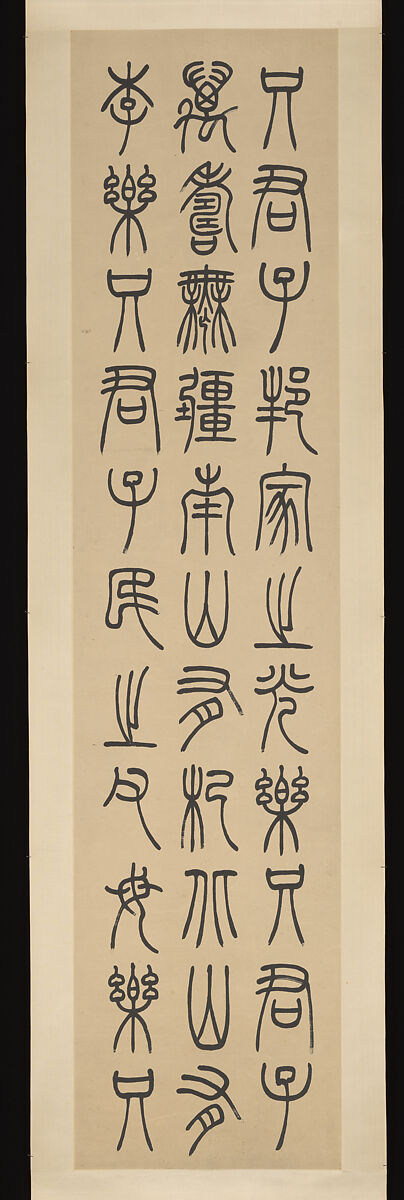 只君子邦家之光樂只君子
萬壽無疆南山有杞北山有
李樂只君子民之父母樂只